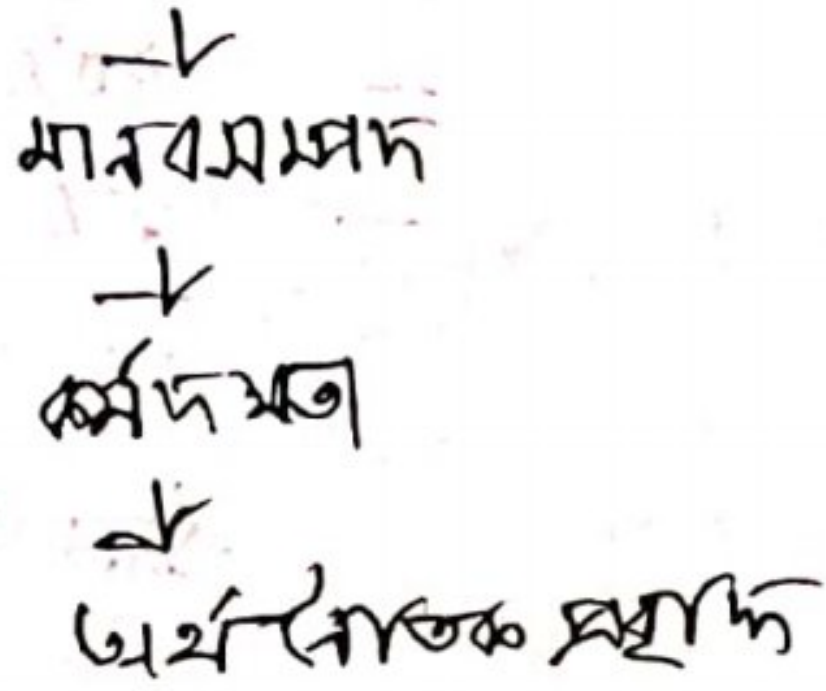 ↓
মানবসম্পদ
↓
কর্মদক্ষতা
↓
অর্থনৈতিক প্রবৃদ্ধি